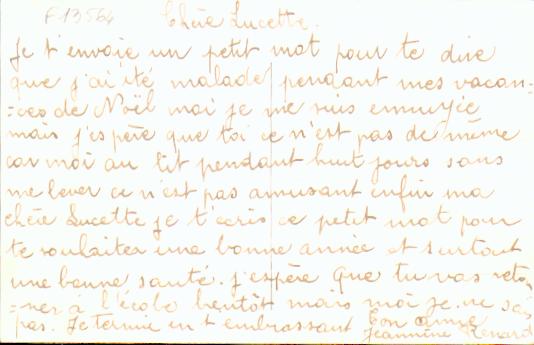 F13564
Chère Lucette.
Je t'envoie un petit mot pour te dire
que j'ai été malade pendant mes vacan=
=ces de Noël moi je me suis ennuyée
mais j'espère que toi ce n'est pas de même
car moi au lit pendant huit jours sans
me lever ce n'est pas amusant enfin ma
chère Lucette je t'écris ce petit mot pour
te souhaiter une bonne année et surtout
une bonne santé. j'espère que tu vas retou
=ner à l'école bentôt mais moi je ne sais
pas. Je termine en t embrassant ton amie
Jeannine Renard